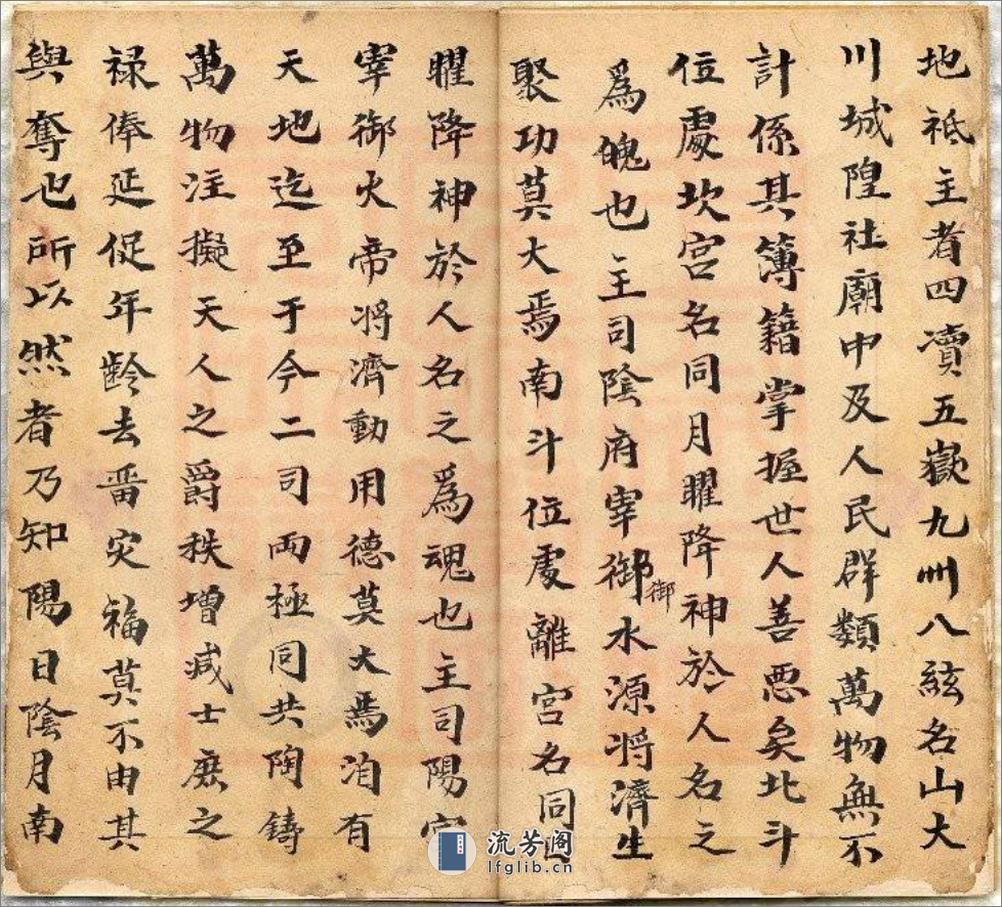 地祇主者四瀆五嶽九州八絃名山大
川城隍社廟中及人民群類萬物無不
計係其簿籍掌握世人善悪矣北斗
位處坎宮名同月曜降神於人名之
為魄也主司陰府宰御水源將濟生
御
聚功莫大焉南斗位處離宮名同日
曜降神於人名之為魂也主司陽宮
宰御火帝將濟動用德莫大焉洎有
天地迄至于今二司両極同共陶鑄
萬物注擬天人之爵秩增減士庶之
禄俸延促年齡去畱灾福莫不由其
與奪也所以然者乃知陽日陰月南
流芳阁
lfglib.cn